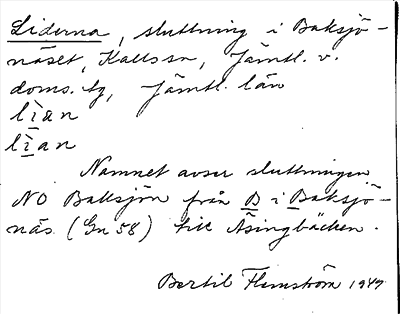 Liderna, sluttning i Baksjö-
näset, Kalls sn, Jämtl. v.
doms. tg, Jämtl. län
lìan
lìan
Namnet avser sluttningen
NO Baksjön från B i Baksjö-
näs (Gn 58) till Åsingbäcken.
Bertil Flemström 1947